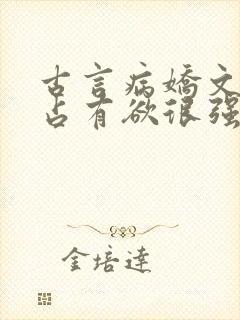 古言病嬌文
占有欲很强
金培達